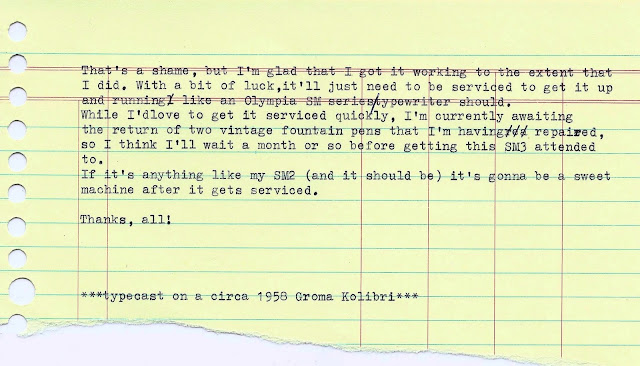 That's a shame, but I'm glad that I got it working to the extent that
I did. With a bit of luck,it'll just need to be serviced to get it up
and running/ like an Olympia SM series/typewriter should.
While I'dlove to get it serviced quickly, I'm currently awaiting
the return of two vintage fountain pens that I'm having/// repaired,
so I think I'll wait a month or so before getting this SM3 attended
to.
If it's anything like my SM2 (and it should be) it's gonna be a sweet
machine after it gets serviced.
Thanks, all!
***typecast on a circa 1958 Groma Kolibri***